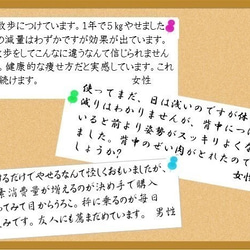 散歩につけています。1年で5㎏やせました
の減量はわずかですが効果が出ています。
歩をしてこんなに違うなんて信じられません
。健康的な痩せ方だと実感しています。これ
続けます。 女性
使ってまだ、日は浅いのですが体
減りはわかりませんが、背中につけ
いると前より姿勢がスッキリよくな
ました。背中のぜい肉がとれたので
しょうか? 女
するだけでやせるなんて怪しくおもいましたが、
素消費量が増えるのが決め手で購入
ってみて目からうろこ。秤に乗るのが毎日
しみです。友人にも薦まだめています。 男性